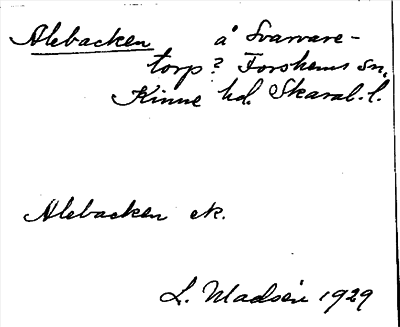 Alebacken å Svarvare-
torp? Forshems sn,
Kinne hd. Skarab. l.
Alebacken ek.
L. Madsén 1929